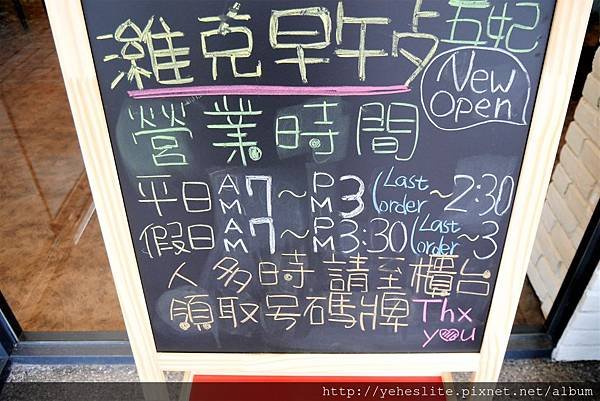 濰克早午夕 五妃
New Open
營業時間
平日AM7~PM3(Last order~2:30
假日AM7~PM3:30(Last order~3
人多時請至櫃台
領取号碼牌 Thx you
http://yeheslite.pixnet.net/album